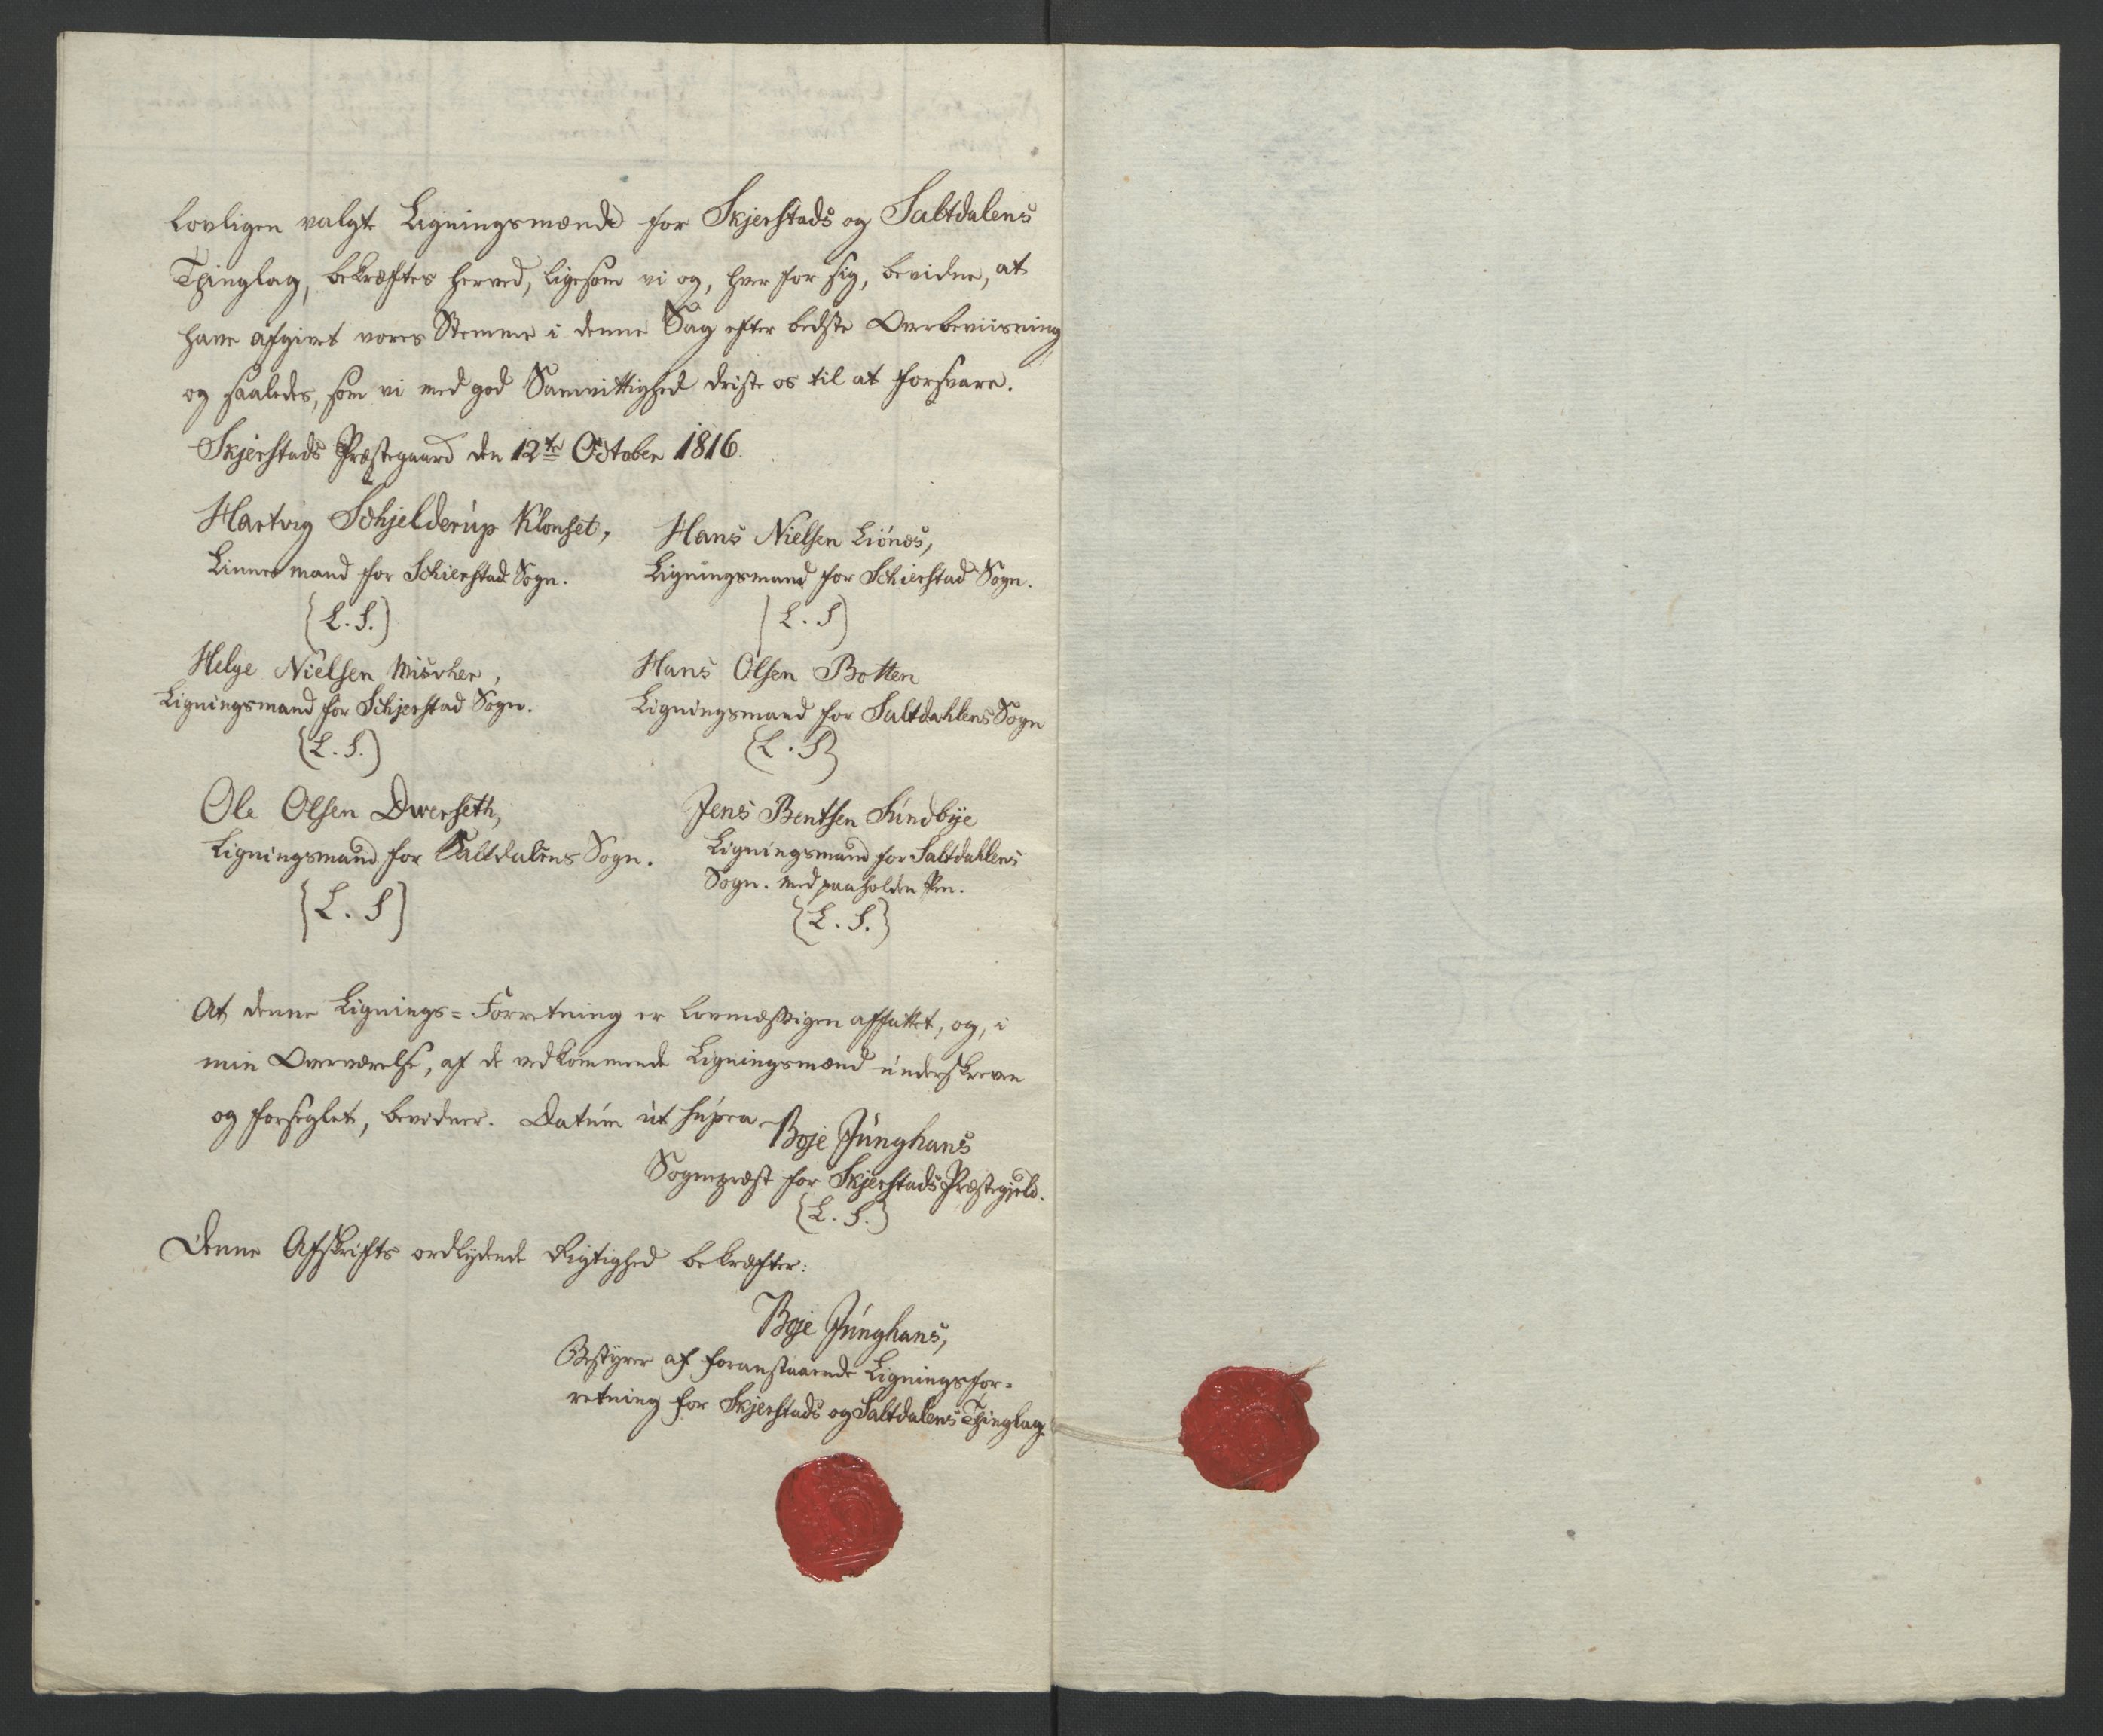 lovligen valgte Ligningsmænd for Skjerstads og Saltdalens
Thinglag, bekræftes herved, ligesom vi og, hver for sig, bevidne, at
have afgivet vores Stemme i denne Sag efter bedste Overbeviisning
og saaledes, som vi med god Samvittighed driste os til at forsvare.
Skjerstads Præstegaard den 12te October 1816.
Hartvig Schjelderup Klonset,
Linnes mand for Schierstad Sogn.
(L. S.)
Hans Nielsen Liönes,
Ligningsmand for Schierstad Sogn.
(L. S)
Helge Nielsen Misvher,
Ligningsmand for Schjerstad Sogn.
(L. S.)
Hans Olsen Botten
Ligningsmand for Saltdahlens Sogn
(L. S)
Ole Olsen Dwerseth,
Ligningsmand for Saltdalens Sogn.
(L. S)
Jens Bentsen Sundbye
Ligningsmand for Saltdahlens
Sogn. med paaholden Pen.
(L. S.)
At denne Lignings=Forretning er lovmæssigen affattet, og, i
min Overværelse, af de vedkommende Ligningsmænd underskreven
og forseglet, bevidner. Datum ut supra
Boje Junghans
Sognepræst for Skjerstads Præstegjeld.
(L. S.)
Denne Afskrifts ordlydende Rigtighed bekræfter:
Boje Junghans,
Bestyrer af foranstaaende Ligningsfor-
retning for Skjerstads og Saltdalens Thinglag.